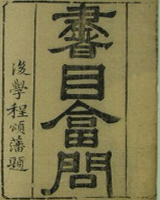 書目畣問
後學程頌藩題